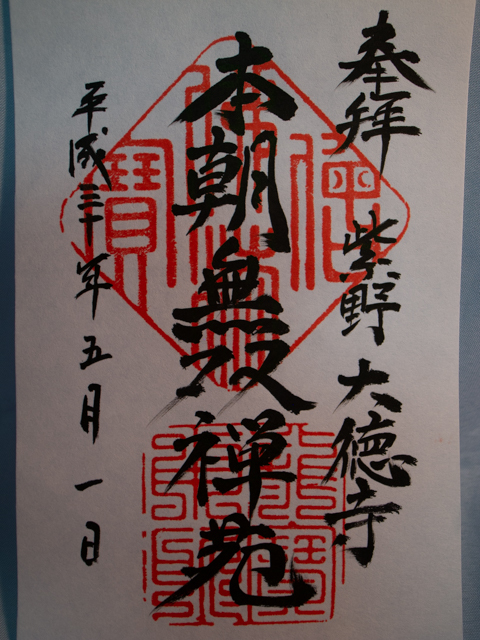 奉拝 紫野 大徳寺
本朝無双禅苑
平成三十年五月一日